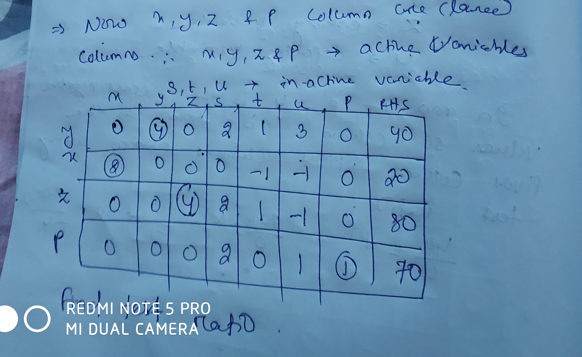 ⇒ Now x, y, z & P column are (lance)
columns ∴ x, y, z & P → active variables
s, t, u → inactive variable.
x y z s t u P RHS
y 0 ④ 0 2 1 3 0 40
x ② 0 0 0 -1 -1 0 20
z 0 0 ④ 2 1 -1 0 80
P 0 0 0 2 0 1 ① 70
Ratio.
REDMI NOTE 5 PRO
MI DUAL CAMERA